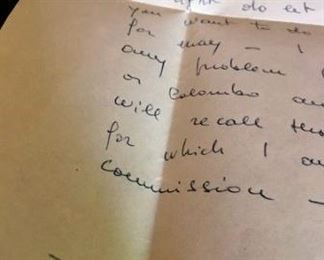 do et
you want to do
for may - I
any problem
or Colombo an
will recall
for which I a
commission -